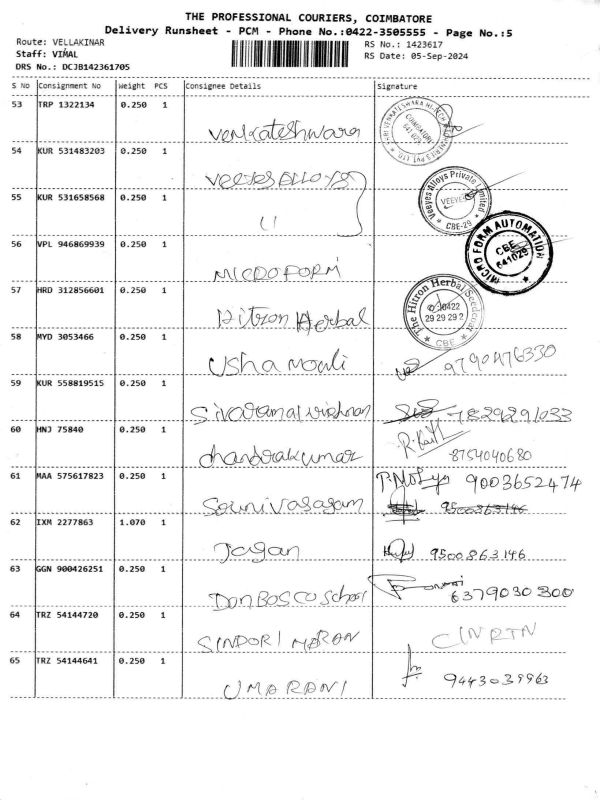 THE PROFESSIONAL COURIERS, COIMBATORE
Delivery Runsheet - PCM - Phone No.:0422-3505555 - Page No.:5
Route: VELLAKINAR RS No.: 1423617
Staff: VIMAL RS Date: 05-Sep-2024
DRS No.: DCJB142361705
S No Consignment No Weight PCS Consignee Details Signature
53 TRP 1322134 0.250 1
Venkateshwara
54 KUR 531483203 0.250 1
VEEYES ALLOYS
Veeyes Alloys Private Limited
VEEYES
CBE-29
55 KUR 531658568 0.250 1
11
56 VPL 946869939 0.250 1
MICROFORM
MICRO FORM AUTOMATION
CBE
641029
57 HRD 312856601 0.250 1
Hitron Herbal
The Hitron Herbal Seedcoat
0422
29 29 29 2
CBE
58 MYD 3053466 0.250 1
Usha Mouli 9790476330
59 KUR 558819515 0.250 1
Sivaramakrishnan 7829291033
60 HNJ 75840 0.250 1
chandrakumar 8754040680
61 MAA 575617823 0.250 1 9003652474
9500863146
62 IXM 2277863 1.070 1
Jagan 9500863146
63 GGN 900426251 0.250 1
Don BOSCO School 6379030300
64 TRZ 54144720 0.250 1
SINDORI MARAN
65 TRZ 54144641 0.250 1
UMARANI 9443039963